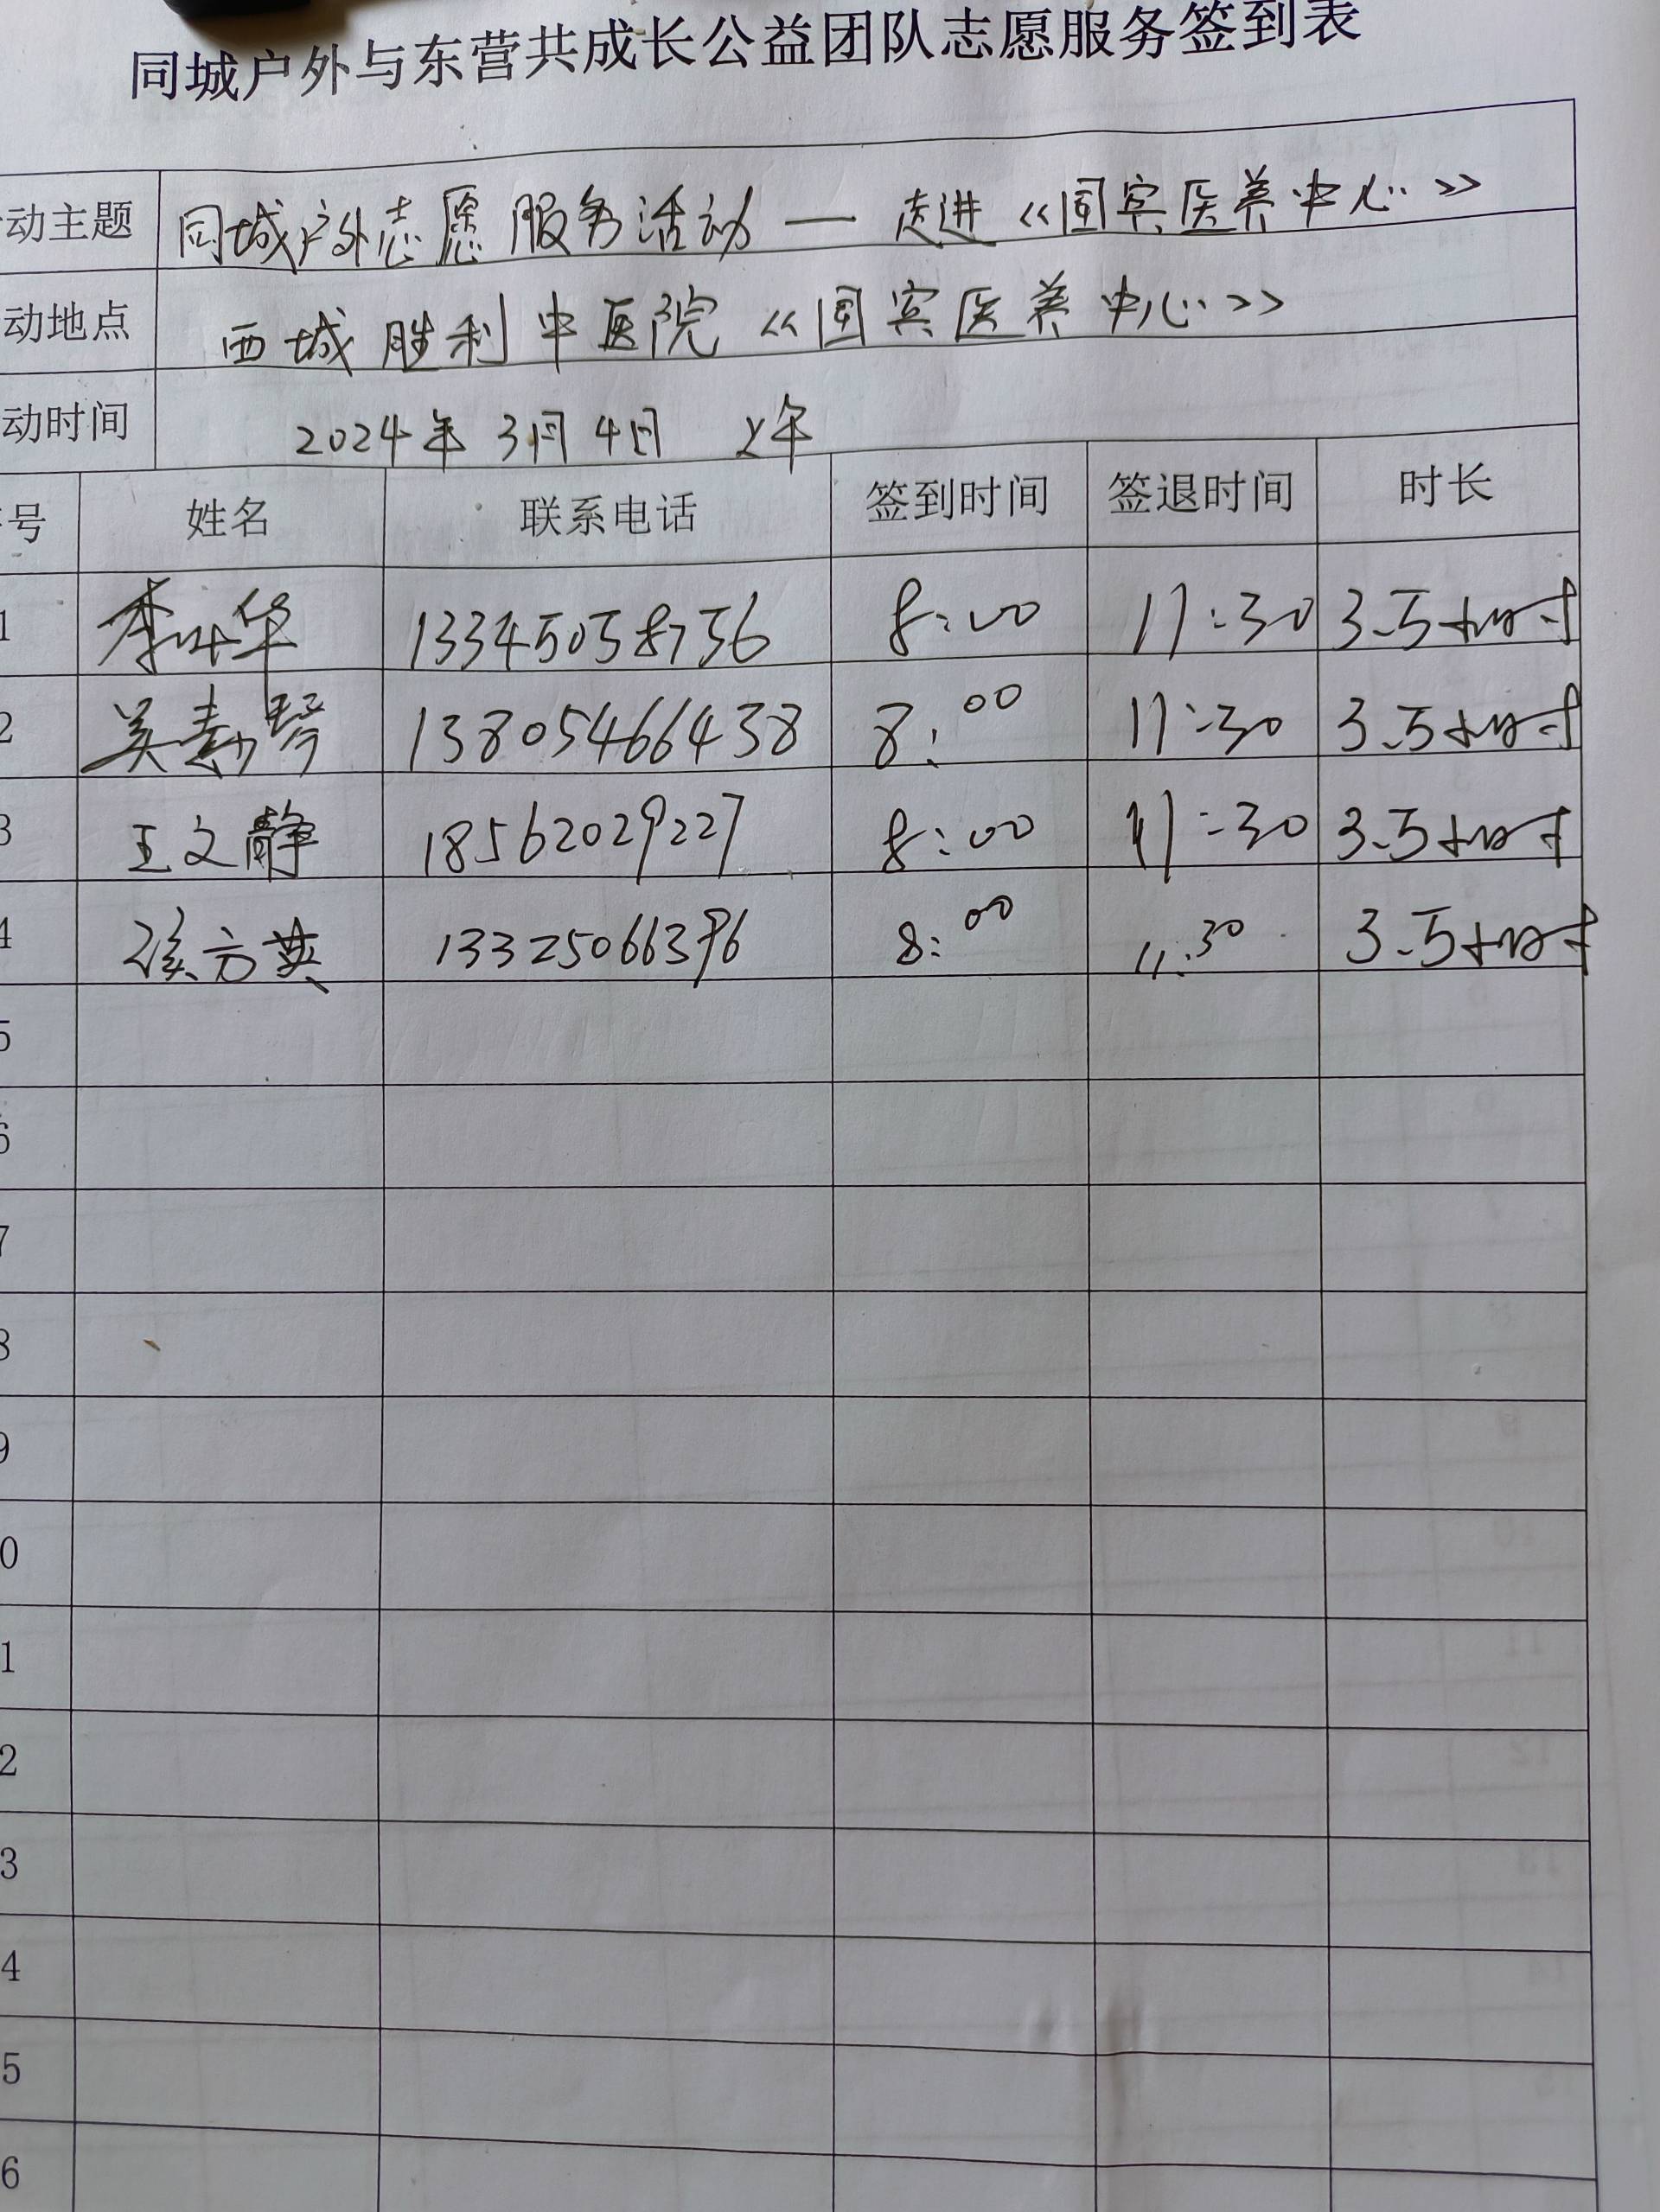 同城户外与东营共成长公益团队志愿服务签到表
动主题 同城户外志愿服务活动 — 走进《国宾医养中心》
动地点 西城胜利中医院《国宾医养中心》
动时间 2024年3月4日 上午
号 姓名 联系电话 签到时间 签退时间 时长
1 李叶华 13345058756 8:00 11:30 3.5小时
2 吴素琴 13805466438 8:00 11:30 3.5小时
3 王文静 18562029227 8:00 11:30 3.5小时
4 方英 13325066396 8:00 11:30 3.5小时
5
6
7
8
9
0
1
2
3
4
5
6